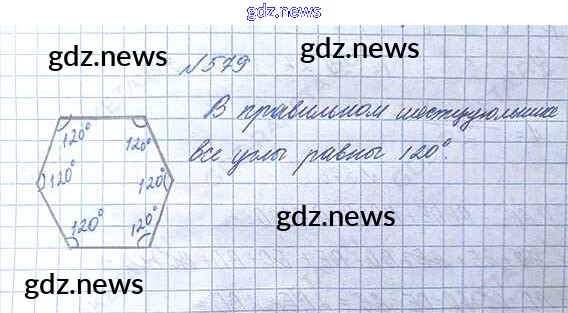 gdz.news
gdz.news
gdz.news
№579
В правильном шестиугольнике
все углы равны 120°.
120°
120°
120°
120°
120°
120°
gdz.news
gdz.news